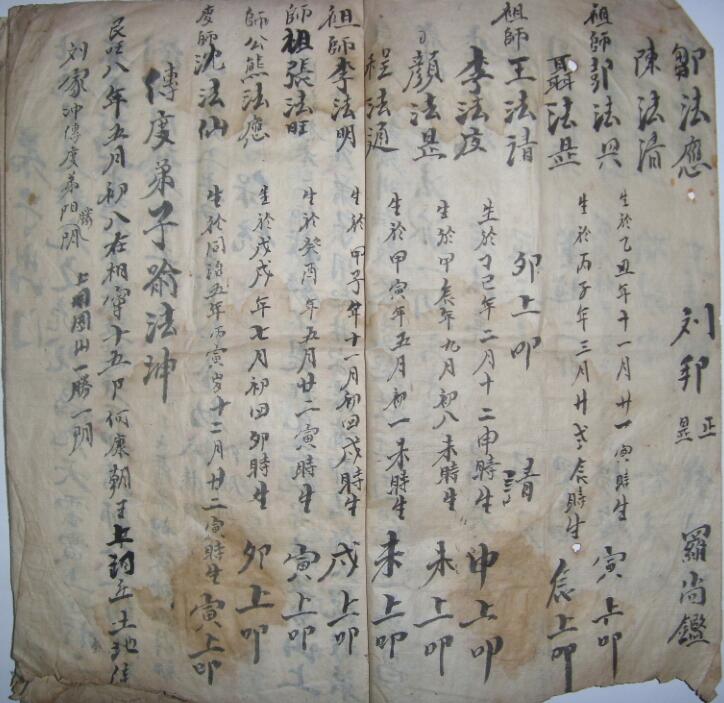 鄒法應 刘邦 正 显 羅尚鑑
陳法清
祖師 彭法兴 生於乙丑年十一月廿一寅時生 寅上叩
聶法显 生於丙子年三月廿 辰時生 辰上叩
祖師 王法清 卯上叩
李法度 生於丁巳年二月十二申時生 申上叩
顔法显 生於甲辰年九月初八未時生 未上叩
程法通 生於甲寅年五月初一未時生 未上叩
祖師 李法明 生於甲子年十一月初四戌時生 戌上叩
師祖 張法旺 生於癸酉年五月廿二寅時生 寅上叩
師公 熊法應 生於戊戌年七月初四卯時生 卯上叩
度師 沈法仙 生於同治五年丙寅岁十二月廿二寅時生 寅上叩
傳度弟子 法坤
民国八年五月初八在相 十五 何康朝 上 土地
刘家冲傳度弟 一 一勝一朋